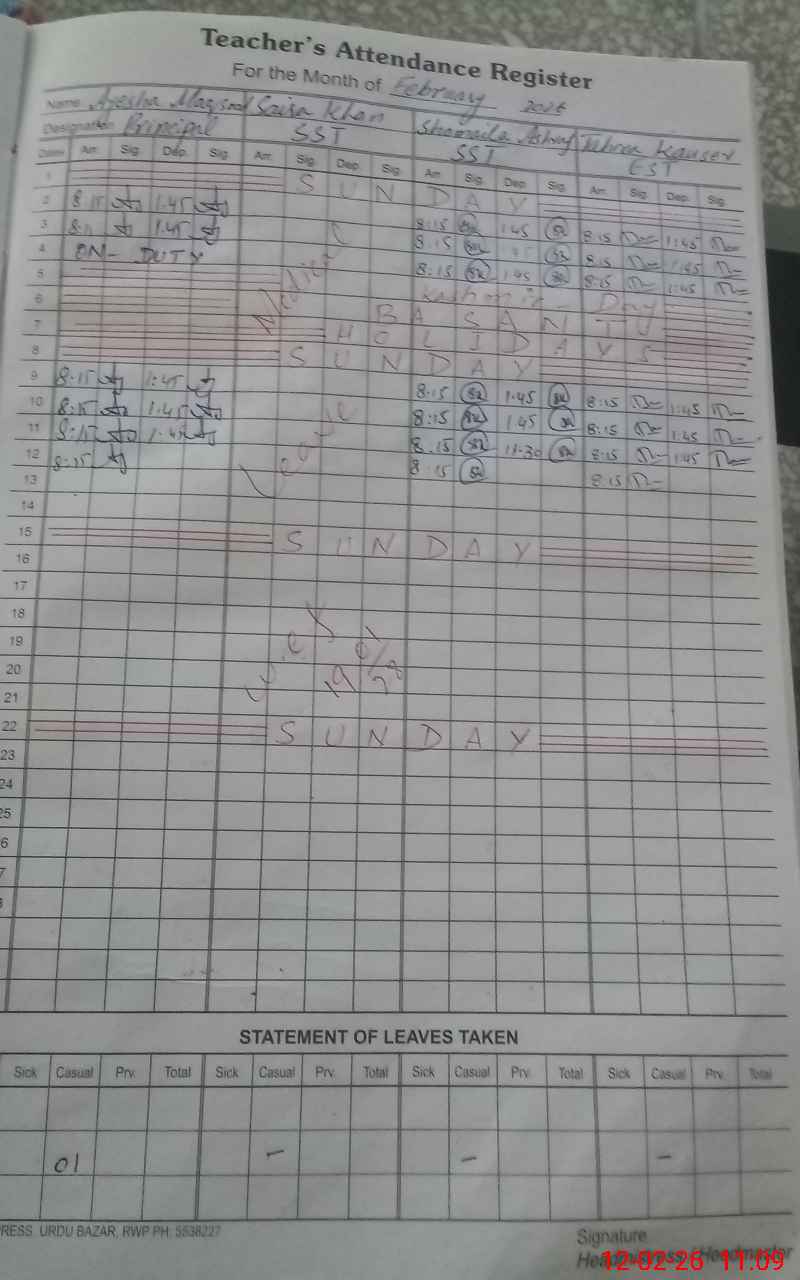 Teacher's Attendance Register
For the Month of February 2026
Name Ayesha Maqsood Saira Khan Shamaila Ashraf Tehren Kauser
Designation Principal SST SST EST
Dates Arr. Sig. Dep. Sig. Arr. Sig. Dep. Sig. Arr. Sig. Dep. Sig. Arr. Sig. Dep. Sig.
1 SUNDAY
2 8:15 1.45 8:15 1.45 8:15 1:45
3 8:1 1.45 8:15 8:15 1:45
4 ON-DUTY 8:15 1.45 8:15 1:45
5 Kashmir Day
6 BASANT
7 HOLIDAYS
8 SUNDAY
9 8:15 1:45 8:15 1.45 8:15 1:45
10 8:15 1.45 8:15 1.45 8:15 1.45
11 8:15 1.45 8.15 11-30 8:15 1:45
12 8:15 8.15 8:15
13
14
15 SUNDAY
16
17
18
19
20
21
22 SUNDAY
23
24
25
6
7
Medical
Leave
STATEMENT OF LEAVES TAKEN
Sick Casual Prv. Total Sick Casual Prv. Total Sick Casual Prv. Total Sick Casual Prv. Total
01 – – –
PRESS. URDU BAZAR, RWP PH: 5538227
Signature
Headmistress / Headmaster
12-02-26 11:09